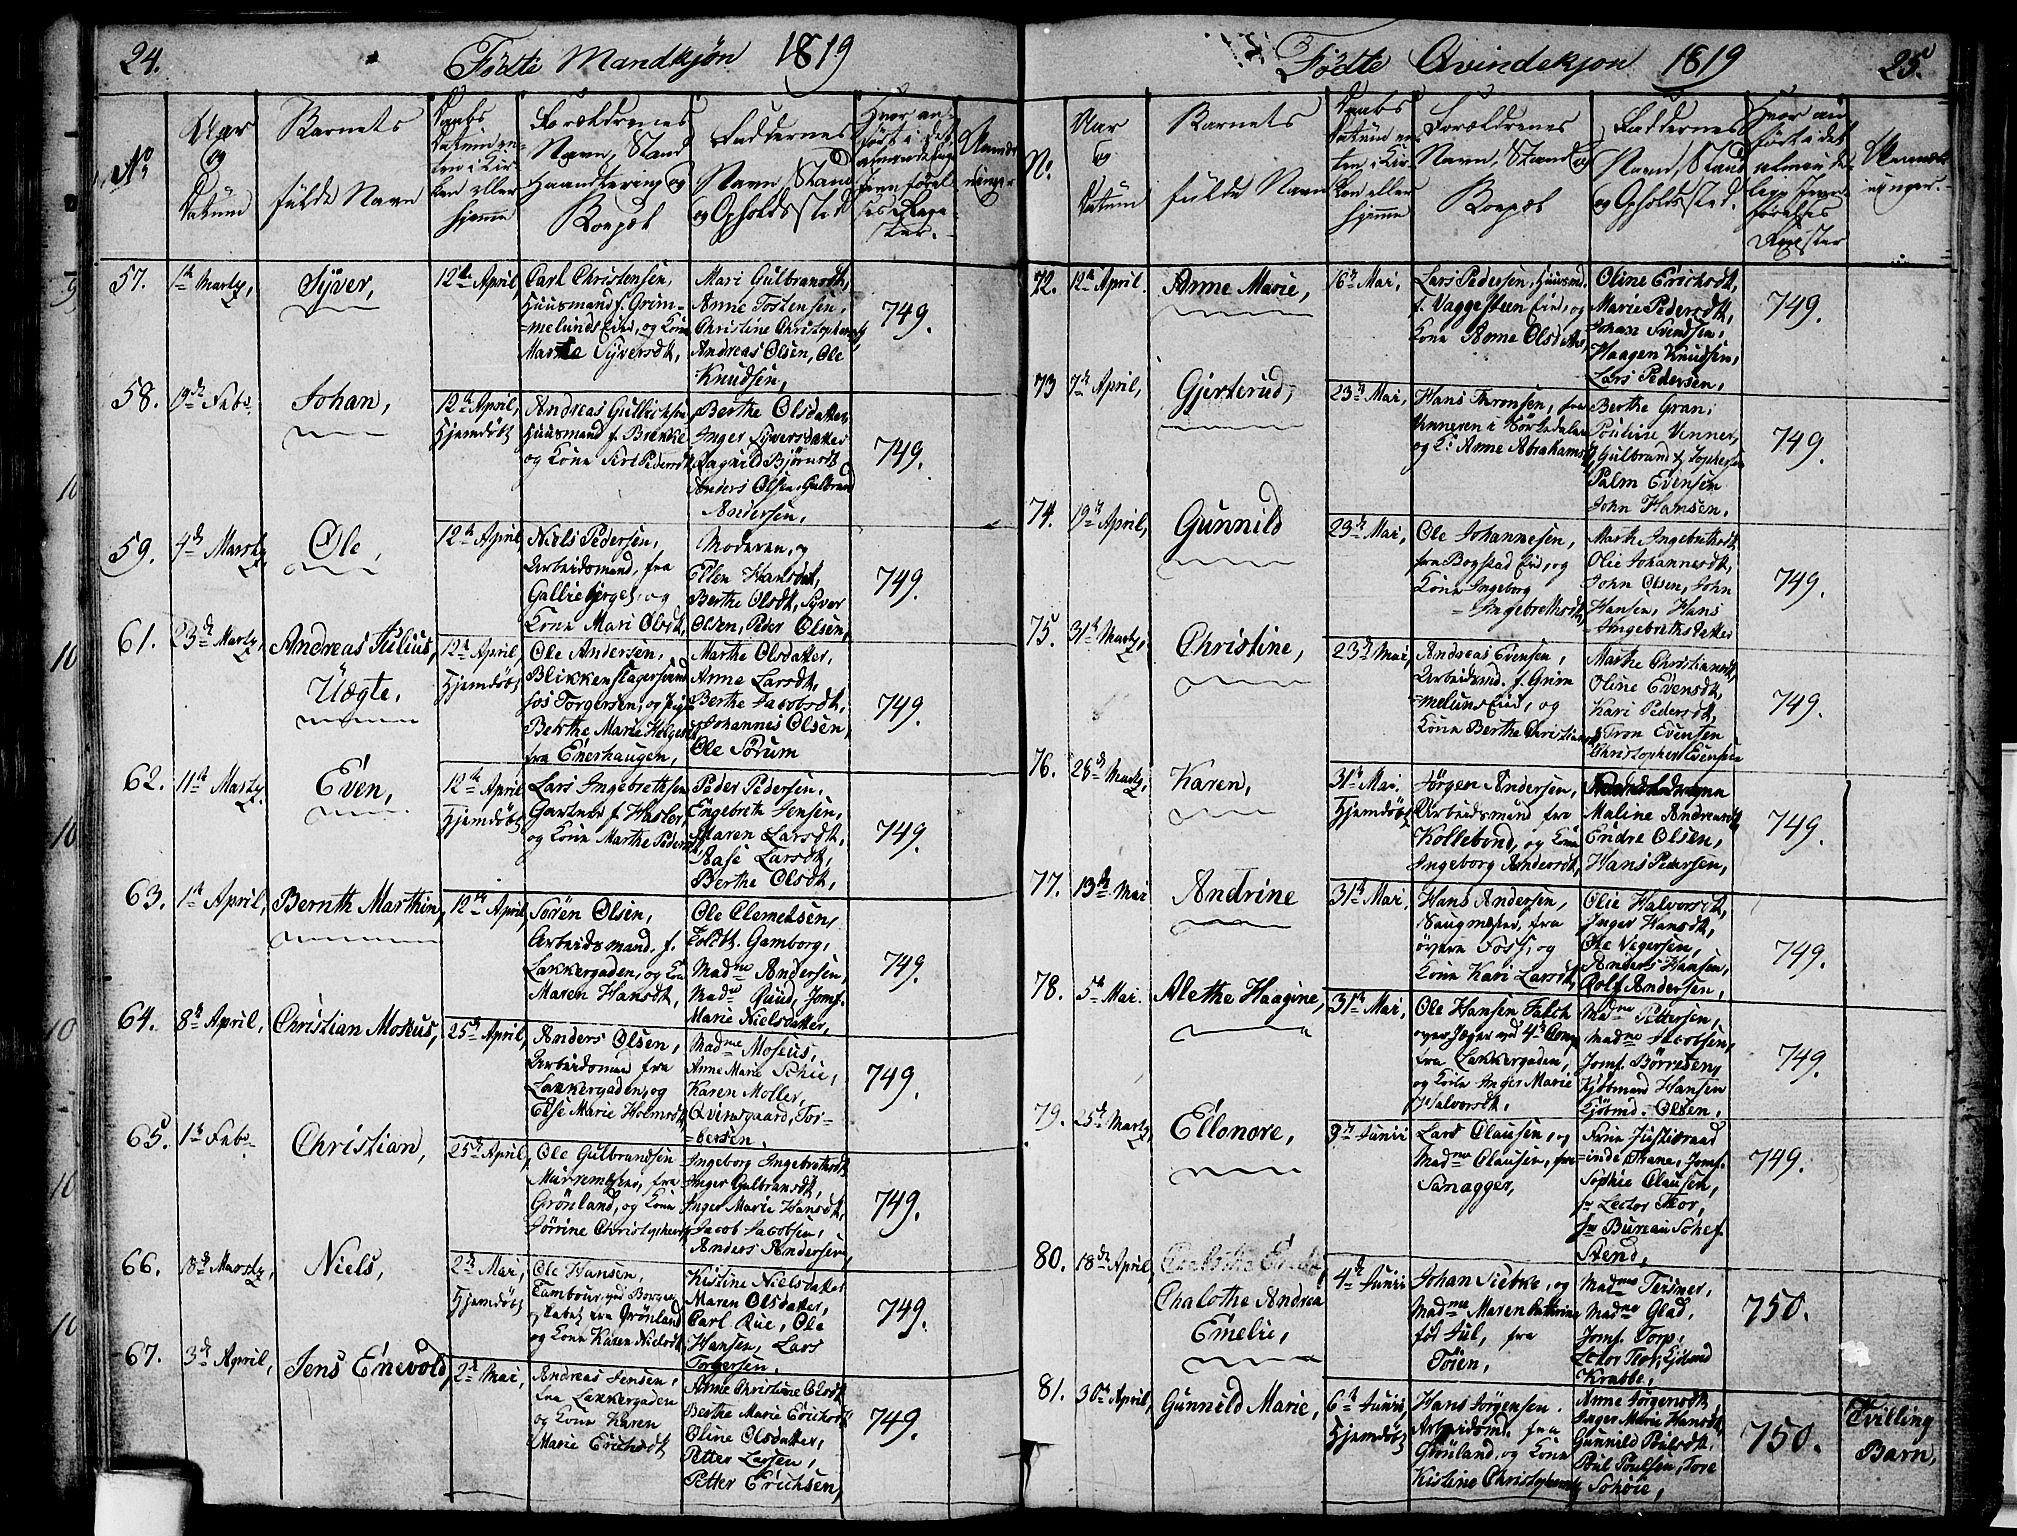 24.
Fødte Mandkjøn 1819
No
Aar og Datum
Barnets fulde Navn
Daabs Datum enten i Kirken eller hjemme
Forældrenes Navn, Stand Haandtering og Boepæl
Faddernes Navn Stand og Opholdssted
Hvor anført i det almindelige Jevnførelses Register.
Anmærkninger
57. 1te Marty, Syver, 12te April,
Carl Christensen,
Huusmand f. Grim-
=melunds Eied, og Kone
Marte Syversdt,
Mari Gulbransdt,
Anne Tostensen,
Christine Christophersdt,
Andreas Olsen, Ole
Knudsen,
749.
58. 19de Febr. Johan, 12te April,
Hjemdøbt
Andreas Gulbrichsen
Huusmand f. Brenke
og Kone Siri Pedersdt
Berthe Olsdatter,
Inger Syversdatter
Ragnild Bjørnsdt
Anders Olsen, Gulbrand
Andersen,
749.
59. 4de Marty, Ole, 12te April
Niels Pedersen,
Arbeidsmand, fra
Galliebjerget, og
Kone Mari Olsdt,
Moderen, og
Ellen Hansdat,
Berthe Olsdt, Syver
Olsen, Peder Olsen,
749.
61. 23de Marty, Andreas Julius,
Uægte, 12te April,
Hjemdøbt
Ole Andersen,
Blikkenslagersvend
hos Torgersen, og Pige
Berthe Marie Holgersdt
fra Enerhaugen,
Marthe Olsdatter,
Anne Larsdt,
Berthe Jacobsdt,
Johannes Olsen,
Ole Sørum
749.
62. 11te Marty, Even, 12te April
Hjemdøbt
Lars Ingebrethsen
Gartner f. Hasler,
og Kone Marthe Pedersdt,
Peder Pedersen,
Engebreth Jensen,
Maren Larsdt,
Aase Larsdt,
Berthe Olsdt,
749.
63. 1te April, Bernth Marthin, 12te April,
Søren Olsen,
Arbeidsmand. f.
Lakkergaden, og Kone
Maren Hansdt,
Ole Clemetsen,
Gamborg,
Madme Andersen,
Madme Ruud, Jomf.
Marie Nielsdatter,
749.
64. 8de April, Christian Moseus, 25de April,
Anders Olsen,
Arbeidsmand fra
Lakkergaden, og
Else Marie Holmsdt,
Madme Moseus,
Anne Marie Schie,
Karen Møller,
Qvinsgaard, Tor-
=bersen
749.
65. 1te Febr. Christian, 25de April,
Ole Gulbrandsen
Murmester, fra
Grønland, og Kone
Jørine Christophersdt
Ingeborg Ingebrethsdt
Inger Gulbransdt,
Inger Marie Hansdt,
Jacob Jacobsen,
Anders Andersen,
749.
66. 18de Marty, Niels, 2de Mai,
Hjemdøbt
Ole Hansen,
Tambour, ved Borger
fra Grønland
og Kone Karen Nielsdt
Kistine Nielsdatter
Maren Olsdatter,
Carl Rue, Ole
Hansen, Lars
Torgersen,
749.
67. 3de April, Jens Enevold, 2de Mai,
Andreas Jensen,
fra Lakkergaden
og Kone Karen
Marie Erichsdt
Anne Christine Olsdt,
Berthe Marie Erichsdt,
Oline Olsdatter,
Petter Larsen,
Petter Erichsen,
749.
Fødte Qvindekjøn 1819
25.
N.
Aar og Datum
Barnets fulde Navn
Daabs Datum enten i Kirken eller hjemme
Forældrenes Navn, Stand og Boepæl
Faddernes Navn, Stand og Opholdssted.
Hvor anført i det almindelige Jevnførelses Register
Anmærkninger.
72. 12te April. Anne Marie, 16de Mai,
Lars Pedersen, Huusmd.
f. Vaggesteen Eied, og
Kone Anne Olsdtr,
Oline Erichsdt,
Marie Pedersdt,
Johan Svendsen,
Haagen Knudsen,
Lars Pedersen,
749.
73 7de April, Gjertrud, 23de Mai,
Hans Thronsen, fra
Venneren i Sørkedalen
og K. Anne Abrahamsdt
Berthe Gran,
Pouline Venner,
Gulbrand Tophersen
Palm Evensen
John Hansen,
749.
74. 19de April, Gunnild 23de Mai,
Ole Johannesen,
fra Bogstad Eied, og
Kone Ingeborg
=Ingebrethsdt,
Marth Ingebrethsdt
Olie Johannesdt,
John Olsen, John
Hansen, Hans
Ingebrethsdatter
749.
75. 31te Marty, Christine, 23de Mai,
Andreas Evensen,
Arbeidsmd. f. Grim
=melunds Eied, og
Kone Berthe Christiansdt
Marthe Christiansdt,
Oline Evensdt,
Kari Pedersdt,
Tron Evensen
Christopher Evensen
749.
76. 28de Marty, Karen, 31te Mai,
Hjemdøbt,
Jørgen Andersen,
Arbeidsmand fra
Kollebond, og Kone
Ingeborg Andersdt,
Maline Andreasdt,
Endre Olsen,
Hans Pedersen,
749.
77. 13de Mai Andrine 31te Mai,
Hans Andersen,
Saugmester, fra
øvere Foss, og
Kone Kari Larsdt,
Olie Halvorsdt,
Inger Hansdt,
Ole Vegersen,
Anders Hansen,
Rolf Andersen,
749.
78. 5te Mai. Alethe Haagine, 31te Mai,
Ole Hansen Falch
over Jæger ved 4de Comp
fra Lakkergaden,
og Kone Inger Marie
Halvorsdt,
Madme Pettersen,
Madme Jacobsen,
Jomf. Børresen,
Kjøbmand Hansen
Kjøbmd. Olsen,
749.
79. 25de Marty, Ellonore, 9de Junii
Lars Clausen, og
Madme Clausen, fra
Sanagger,
Frue Justitsraad
=inde Thrane, Jomf.
Sophie Clausen,
Hr Lector Thor,
Hr Bureau Schef
Stend,
749.
80. 18de April,
Chalothe Andrea
Emelie, 4de Junii
Johan Siebke, og
Madme Maren Kathrine
fød Jul, fra
Tøien,
Madme Teisner,
Madme Glad,
Jomf. Torp,
Lector Thor,
Krabbe,
750.
81. 30te April, Gunnild Marie, 6te Junii
Hjemdøbt
Hans Jørgensen.
Arbeidsmd. fra
Grønland, og Kone
Kistine Christophersdt,
Anne Jørgensdt,
Inger Marie Hansdt,
Gunnild Poulsdt,
Poul Poulsen, Tore
Schøie,
750.
Tvilling
Barn,